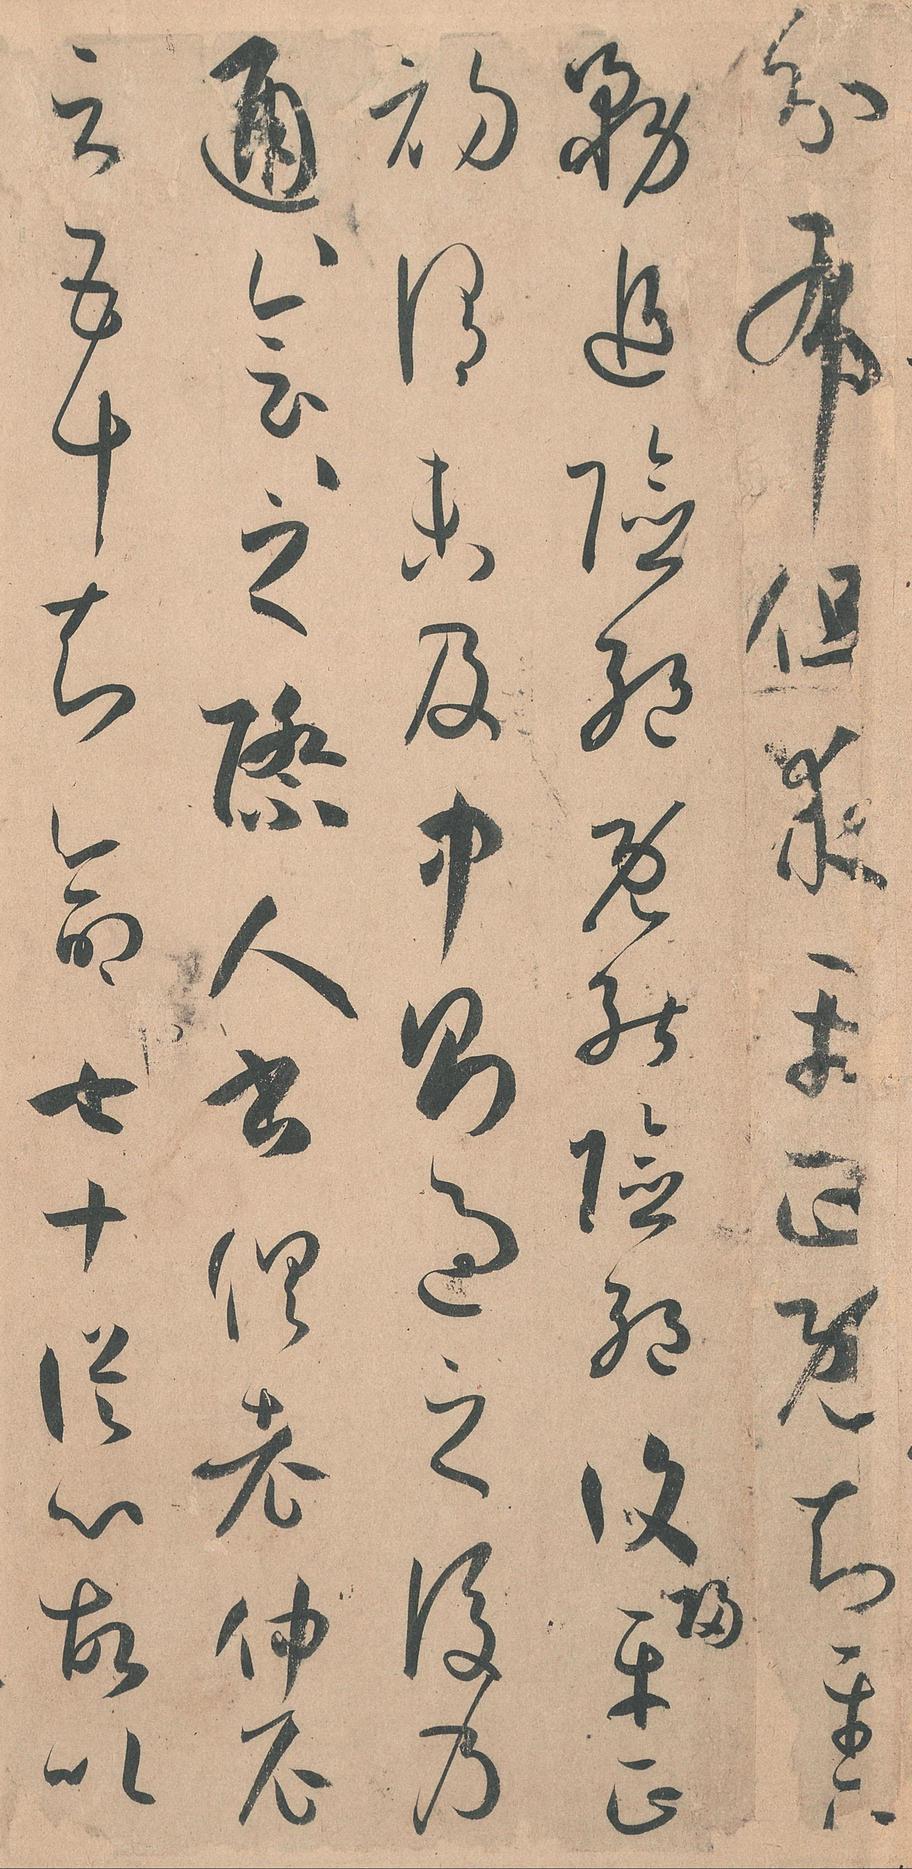 分布但求平正既知平正
務追險絕既能險絕復歸平正
初謂未及中則過之後乃
通〻會〻之際人書俱老仲尼
云五十知命七十從心故以